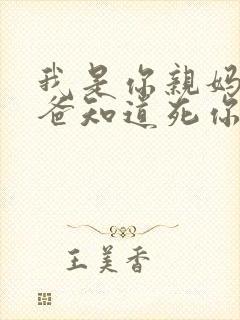 我是你親妈
爸知道死你
王美香